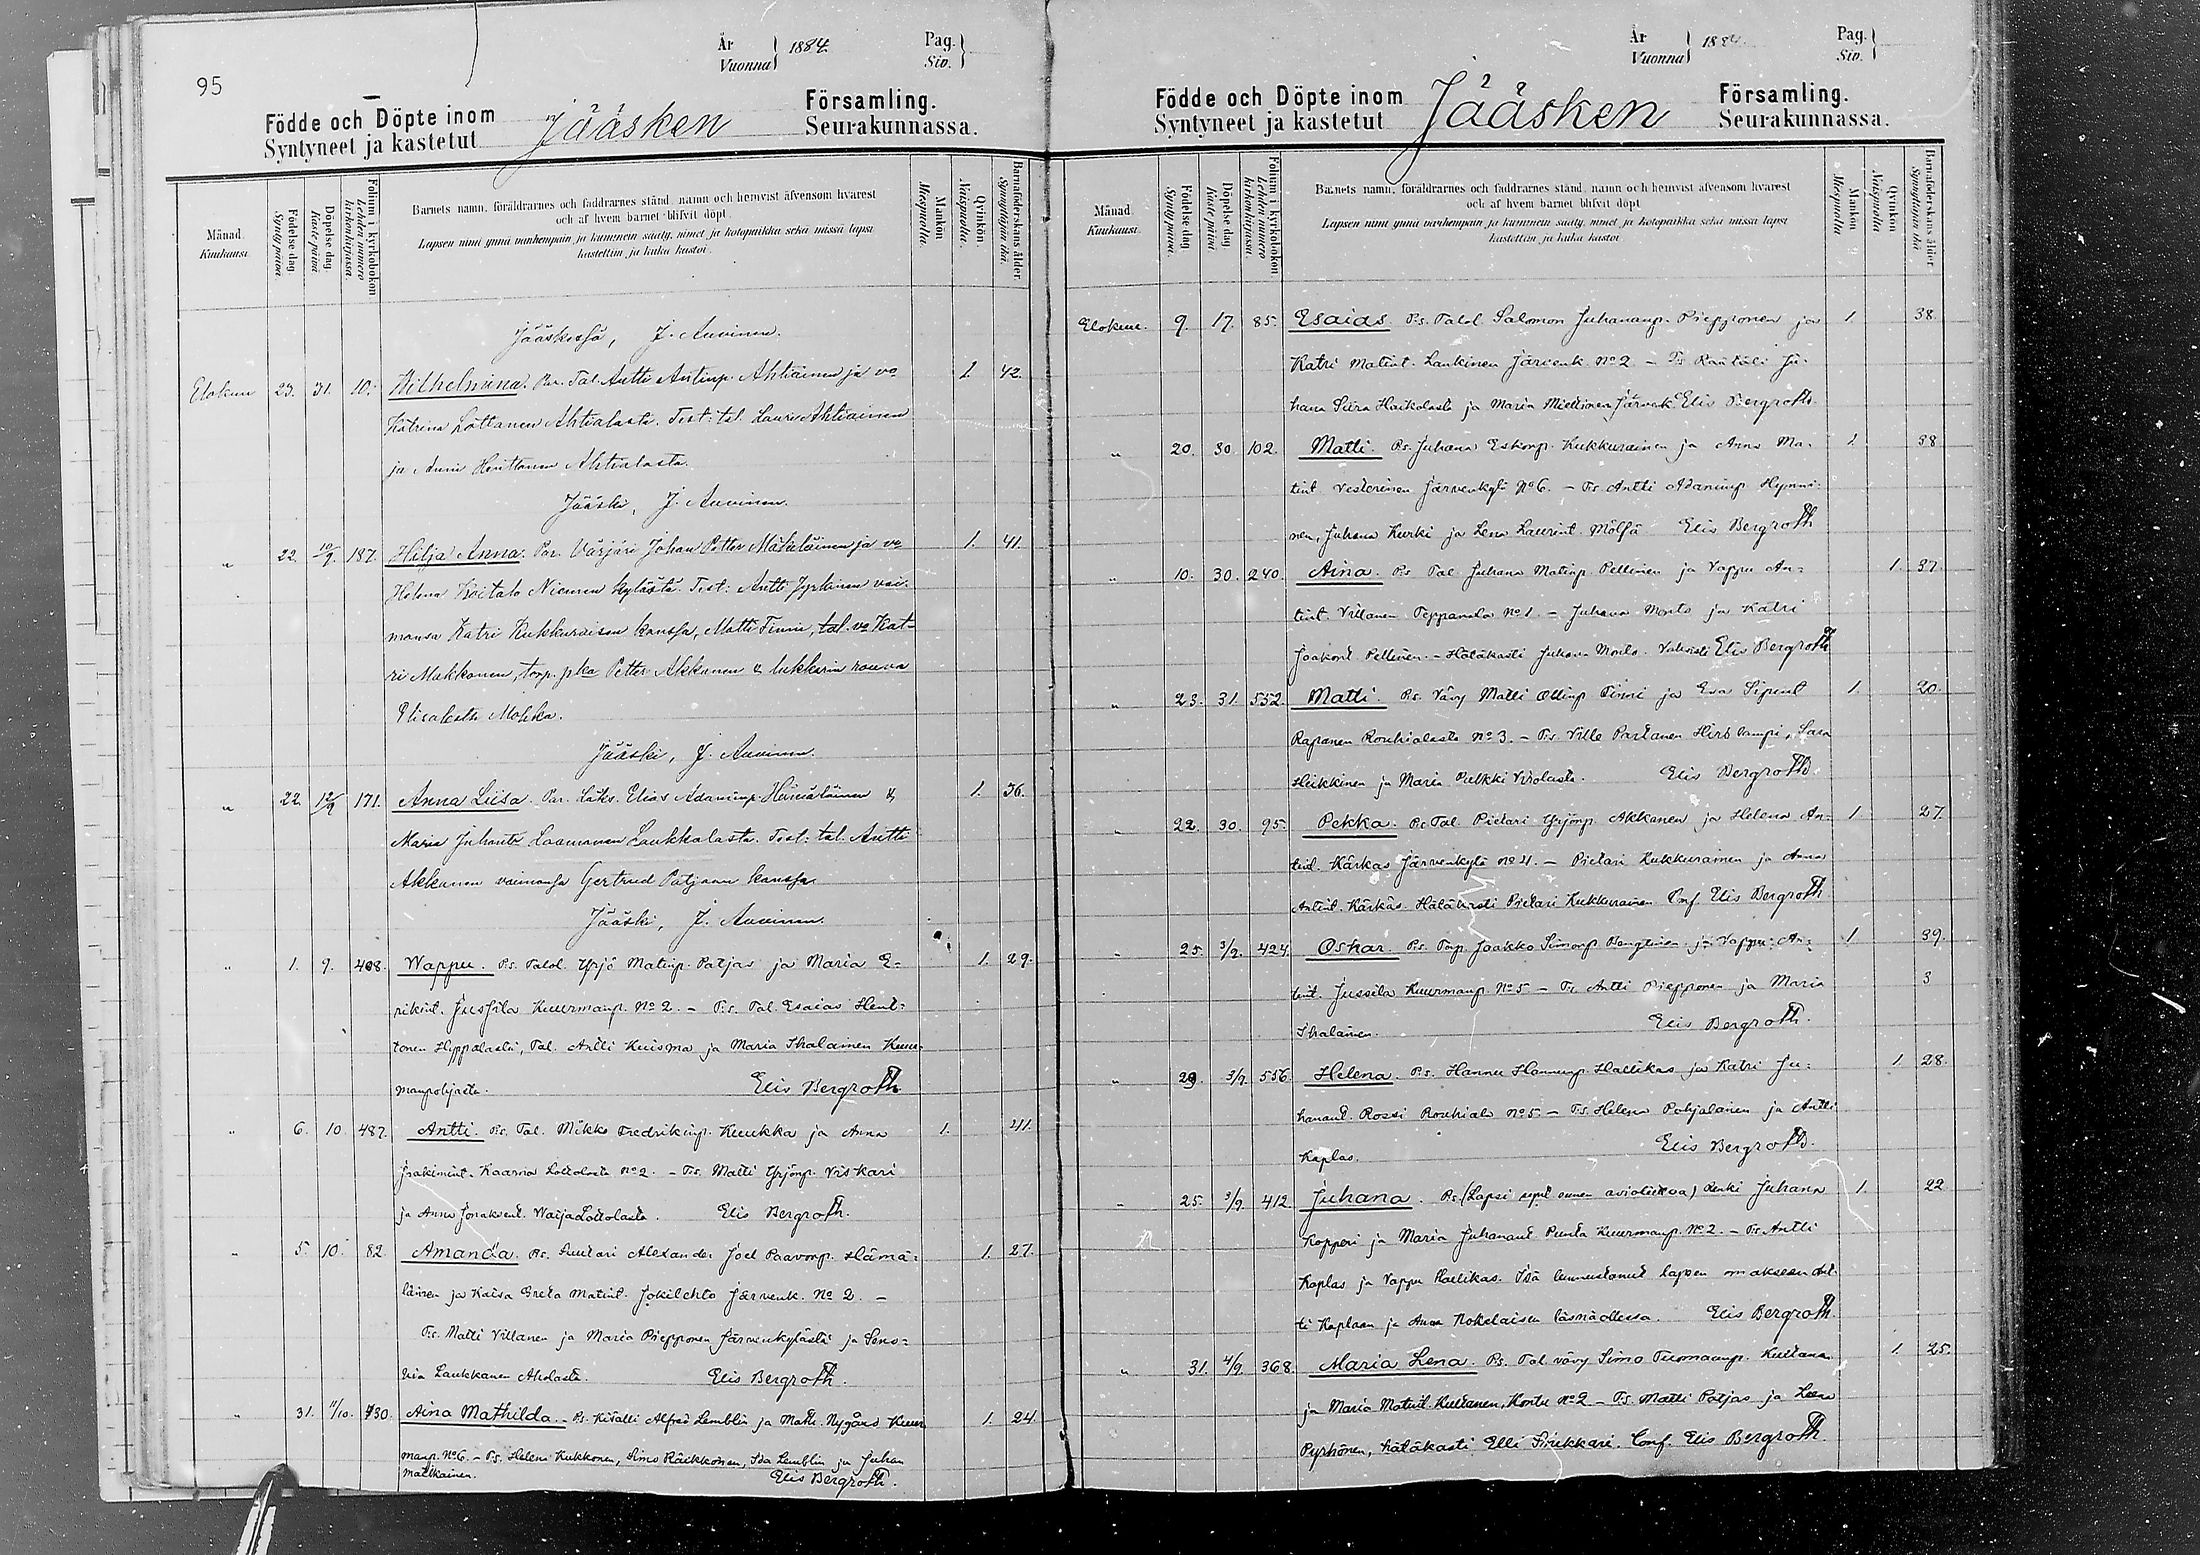 95
År
Vuonna
1884.
Pag.
Siv.
Födde och Döpte inom
Syntyneet ja kastetut
Jääsken
Församling.
Seurakunnassa.
Månad.
Kuukausi.
Födelse dag.
Syntypäivä.
Döpelse dag.
Kastepäivä.
Folium i kyrkoboken
Lehden numero kirkonkirjassa.
Barnets namn, föräldrarnes och faddrarnes stånd, namn och hemvist äfvensom hvarest
och af hvem barnet blifvit döpt.
Lapsen nimi ynnä vanhempain ja kummein sääty, nimet ja kotopaikka sekä missä lapsi
kastettiin ja kuka kastoi.
Mankön
Miespuolia.
Qvinkön
Naispuolia.
Barnaföderskans ålder.
Synnyttäjän ikä.
Jääskessä, J. Auvinen.
Elokuu 23. 31. 10. Wilhelmina. Par. Tal. Antti Antinp. Ahtiainen ja vo 1. 42.
Katrina Lottanen Ahtialasta. Test: tal. Lauri Ahtiainen
ja Anni Henttonen Ahtialasta.
Jääski, J. Auvinen.
" 22. 10/9. 187. Hilja Anna. Par. Värjäri Johan Petter Mätäläinen ja vo 1. 41.
Helena Koitalo Niemen kylästä. Test: Antti Jyrkinen vai-
monsa Katri Kukkuraisen kanssa, Matti Finni, tal. vo Kat-
ri Makkonen, torp. pka Petter Akkanen & lukkarin rouva
Elisabeth Mohka.
Jääski, J. Auvinen.
" 22. 12/9 171. Anna Liisa. Par. Loks. Elias Adaminp. Hämäläinen & 1. 36.
Maria Juhantr Laamanen Laukkalasta. Test: tal. Antti
Akkanen vaimonsa Gertrud Patjaan kanssa.
Jääski, J. Auvinen.
" 1. 9. 408. Wappu. Ps. Talol. Yrjö Matinp. Patjas ja Maria E- 1. 29.
rikint. Jussila Kuurmanp. No 2. - Ts. Tal. Esaias Hent-
tonen Hippolasta, Tal. Antti Kuisma ja Maria Ihalainen Kuur-
manpohjasta. Elis Bergroth
" 6. 10. 487. Antti. Ps. Tal. Mikko Fredrikinp. Kuukka ja Anna 1. 41.
Joakimint. Kaarna Lottolasta No 2. - Ts. Matti Yrjönp. Viskari
ja Anna Jonaksent. Warja Lottolasta. Elis Bergroth.
" 5. 10. 82. Amanda. Ps. Suutari Alexander Joel Paavonp. Hämä- 1. 27.
läinen ja Kaisa Greta Matint. Jokilehto Järvenk. No 2. -
Ts. Matti Villanen ja Maria Piepponen Järvenkylästä ja
Laukkanen Aholasta. Elis Bergroth.
" 31. 11/10. 730. Aina Mathilda. - Ps. Kivalli Alfred Lemblin ja Math. Nygård Kuur 1. 24.
manp. No 6. - Ts. Helena Kukkonen, Simo Räikkönen, Ida Lemblin ja Juhan
Matikainen. Elis Bergroth.
År
Vuonna
1884.
Pag.
Siv.
Födde och Döpte inom
Syntyneet ja kastetut
Jääsken
Församling.
Seurakunnassa.
Månad.
Kuukausi.
Födelse dag.
Syntypäivä.
Döpelse dag.
Kastepäivä.
Folium i kyrkoboken
Lehden numero kirkonkirjassa.
Barnets namn, föräldrarnes och faddrarnes stånd, namn och hemvist äfvensom hvarest
och af hvem barnet blifvit döpt
Lapsen nimi ynnä vanhempain ja kummein sääty, nimet ja kotopaikka sekä missä lapsi
kastettiin ja kuka kastoi.
Mankön
Miespuolia
Qvinkön
Naispuolia
Barnaföderskans ålder.
Synnyttäjän ikä
Elokuu. 9. 17. 85. Esaias. Ps. Talol. Salomon Juhananp. Piepponen ja 1. 38.
Katri Matint. Laukinen Järvenk. No 2. - Ts. Räätäli Ju-
hana Siira Haikolasta ja Maria Miettinen Järvenk. Elis Bergroth.
" 20. 30. 102. Matti. Ps. Juhana Eskonp. Kukkurainen ja Anna Ma- 1 38
tint. Vesterinen Järvenkylä No 6. - Ts. Antti Adaminp. Hynni-
nen, Juhana Kurki ja Lena Laurint. Mölsä Elis Bergroth
" 10. 30. 240. Aina. Ps. Tal. Juhana Matinp. Pellinen ja Vappu An- 1. 37
tint. Villanen Teppanala No 1. - Juhana Monto ja Katri
Jaakont. Pellinen. - Hätäkasti Juhana Monto. Vahvisti Elis Bergroth
" 23. 31. 552. Matti. Ps. Vävy Matti Ollinp. Finni ja Eva Sipint 1. 20.
Rapanen Rouhialasta No 3. - Ts. Ville Partanen Hirslampi, Sara
Heikkinen ja Maria Pulkki Virolasta. Elis Bergroth.
" 22. 30. 95. Pekka. Ps. Tal. Pietari Yrjönp. Akkanen ja Helena An- 1 27.
tint. Kärkäs Järvenkylä No 4. - Pietari Kukkurainen ja Anna
Antint. Kärkäs. Hätäkasti Pietari Kukkurainen Conf. Elis Bergroth
" 25. 3/9. 424. Oskar. Ps. Torp. Jaakko Simonp. Penghuis ja Vappu An- 1 39.
tint. Jussila Kuurmanp. No 5 - Ts. Antti Piepponen ja Maria 3
Ihalainen. Elis Bergroth.
" 29. 3/9. 556. Helena. Ps. Hannu Hannunp. Hallikas ja Katri Ju- 1 28.
hanant. Rossi Rouhiala No 5 - Ts. Helena Pohjalainen ja Antti
Kaplas. Elis Bergroth.
" 25. 3/9. 412. Juhana. Ps. (Lapsi ennen avioliittoa) Renki Juhana 1. 22
Kopperi ja Maria Juhanant. Punta Kuurmanp. No 2. - Ts. Antti
Kaplas ja Vappu Hallikas. Isä tunnustanut lapsen omakseen Ant-
ti Kaplaan ja Anna Kokolaisen läsnäollessa. Elis Bergroth.
" 31. 4/9. 368. Maria Lena. Ps. Tal. vävy Simo Tuomaanp. Kultanen 1 25.
ja Maria Matint. Kultanen, Kontu No 2 - Ts. Matti Patjas ja Leena
Pyrhönen, hätäkasti Elli Sirukkari. Conf. Elis Bergroth